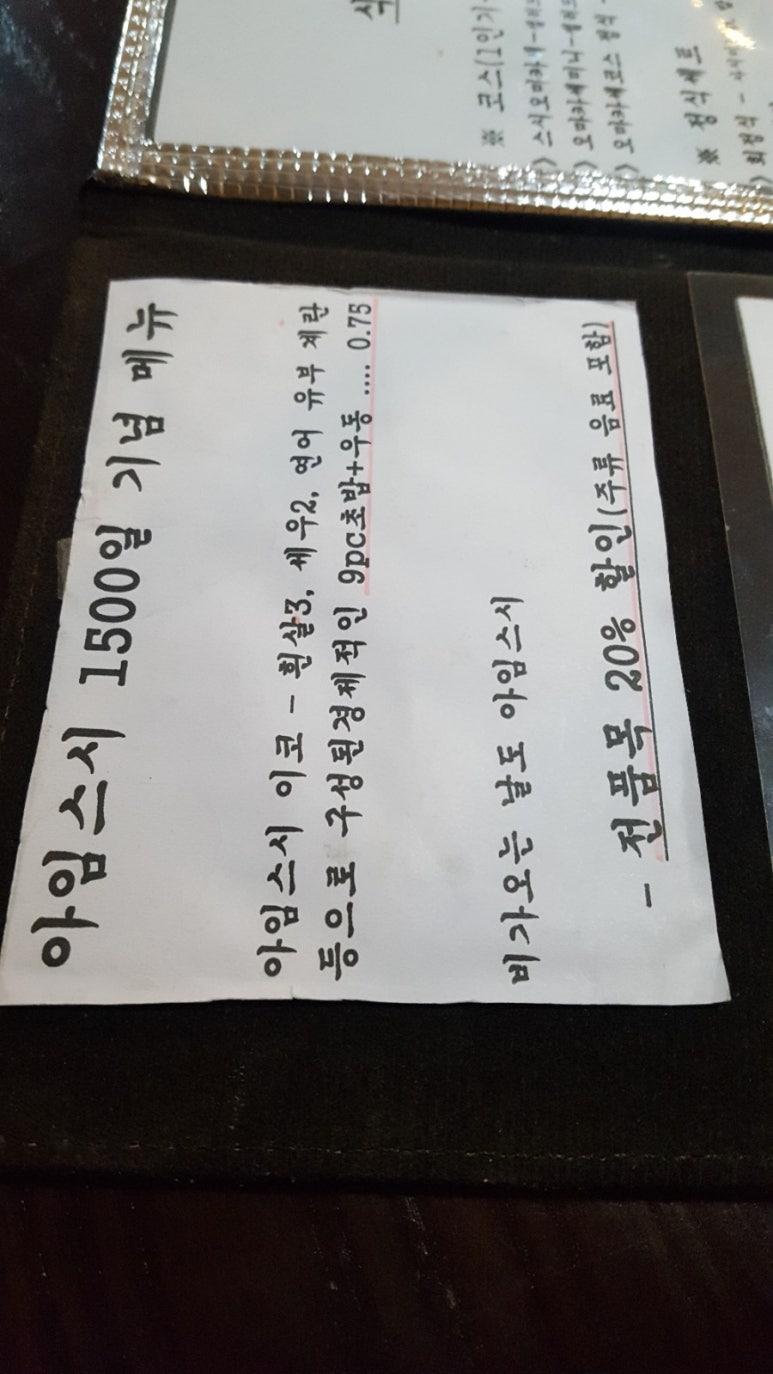 아임스시 1500일 기념 메뉴
아임스시 이코 - 흰살3, 새우2, 연어 유부 계란
등으로 구성된경제적인 9pc초밥+우동 .... 0.75
비가오는 날도 아임스시
- 전품목 20% 할인(주류 음료 포함)
식
※ 코스(1인가
> 스시오마카세
> 오마카세미니
> 오마카세코스 정식
※ 정식세트
> 회정식 -